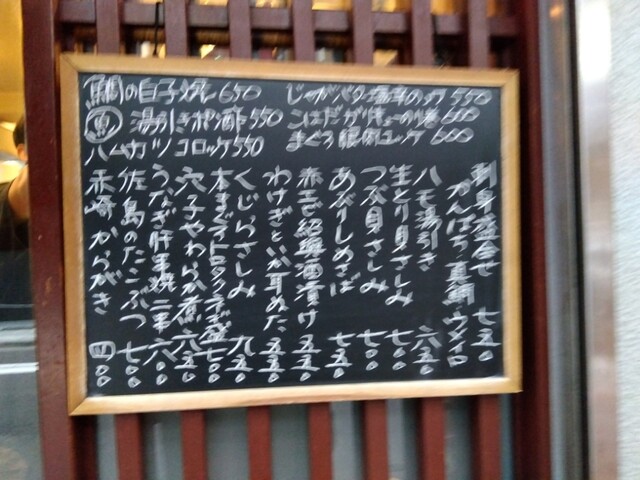 鯛の白子焼し 650
魚 湯引きポン酢 550
ハムカツ コロッケ 550
じゃがバター塩辛のっけ 550
こはだガリキューの 600
まぐろ ユッケ 600
刺身盛合せ 七五〇
かんぱち 真鯛 ウメイロ
ハモ湯引き 六五〇
生とり貝さしみ 七〇〇
つぶ貝さしみ 七〇〇
あぶりしめさば 七五〇
赤エビ紹興酒漬け 五五〇
わけぎといか耳ぬた 五五〇
くじらさしみ 九五〇
本まぐろトロタクネギ盛 七〇〇
穴子やわらか煮 六五〇
うなぎ肝串焼 二本 六八〇
佐島のたこぶつ 七〇〇
赤崎からがき 四〇〇